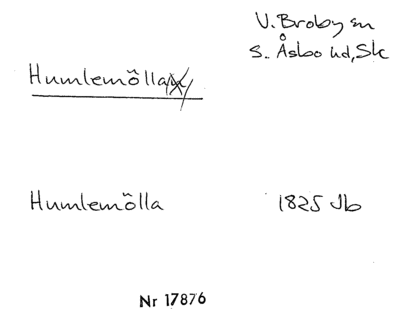 V. Broby sn
S. Åsbo hd, Sk
Humlemölla
Humlemölla 1825 Jb
Nr 17876